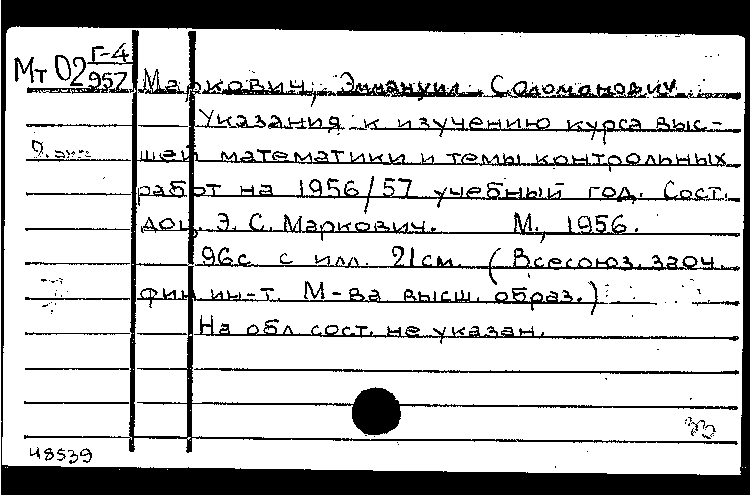 Мт 02 Г-4/957
Маркович, Эммануил Соломонович.
Указания к изучению курса выс-
шей математики и темы контрольных
работ на 1956/57 учебный год. Сост.
доц. Э. С. Маркович. М., 1956.
96с с илл. 21см. (Всесоюз. заоч.
фин. ин-т. М-ва высш. образ.)
На обл сост. не указан.
48539